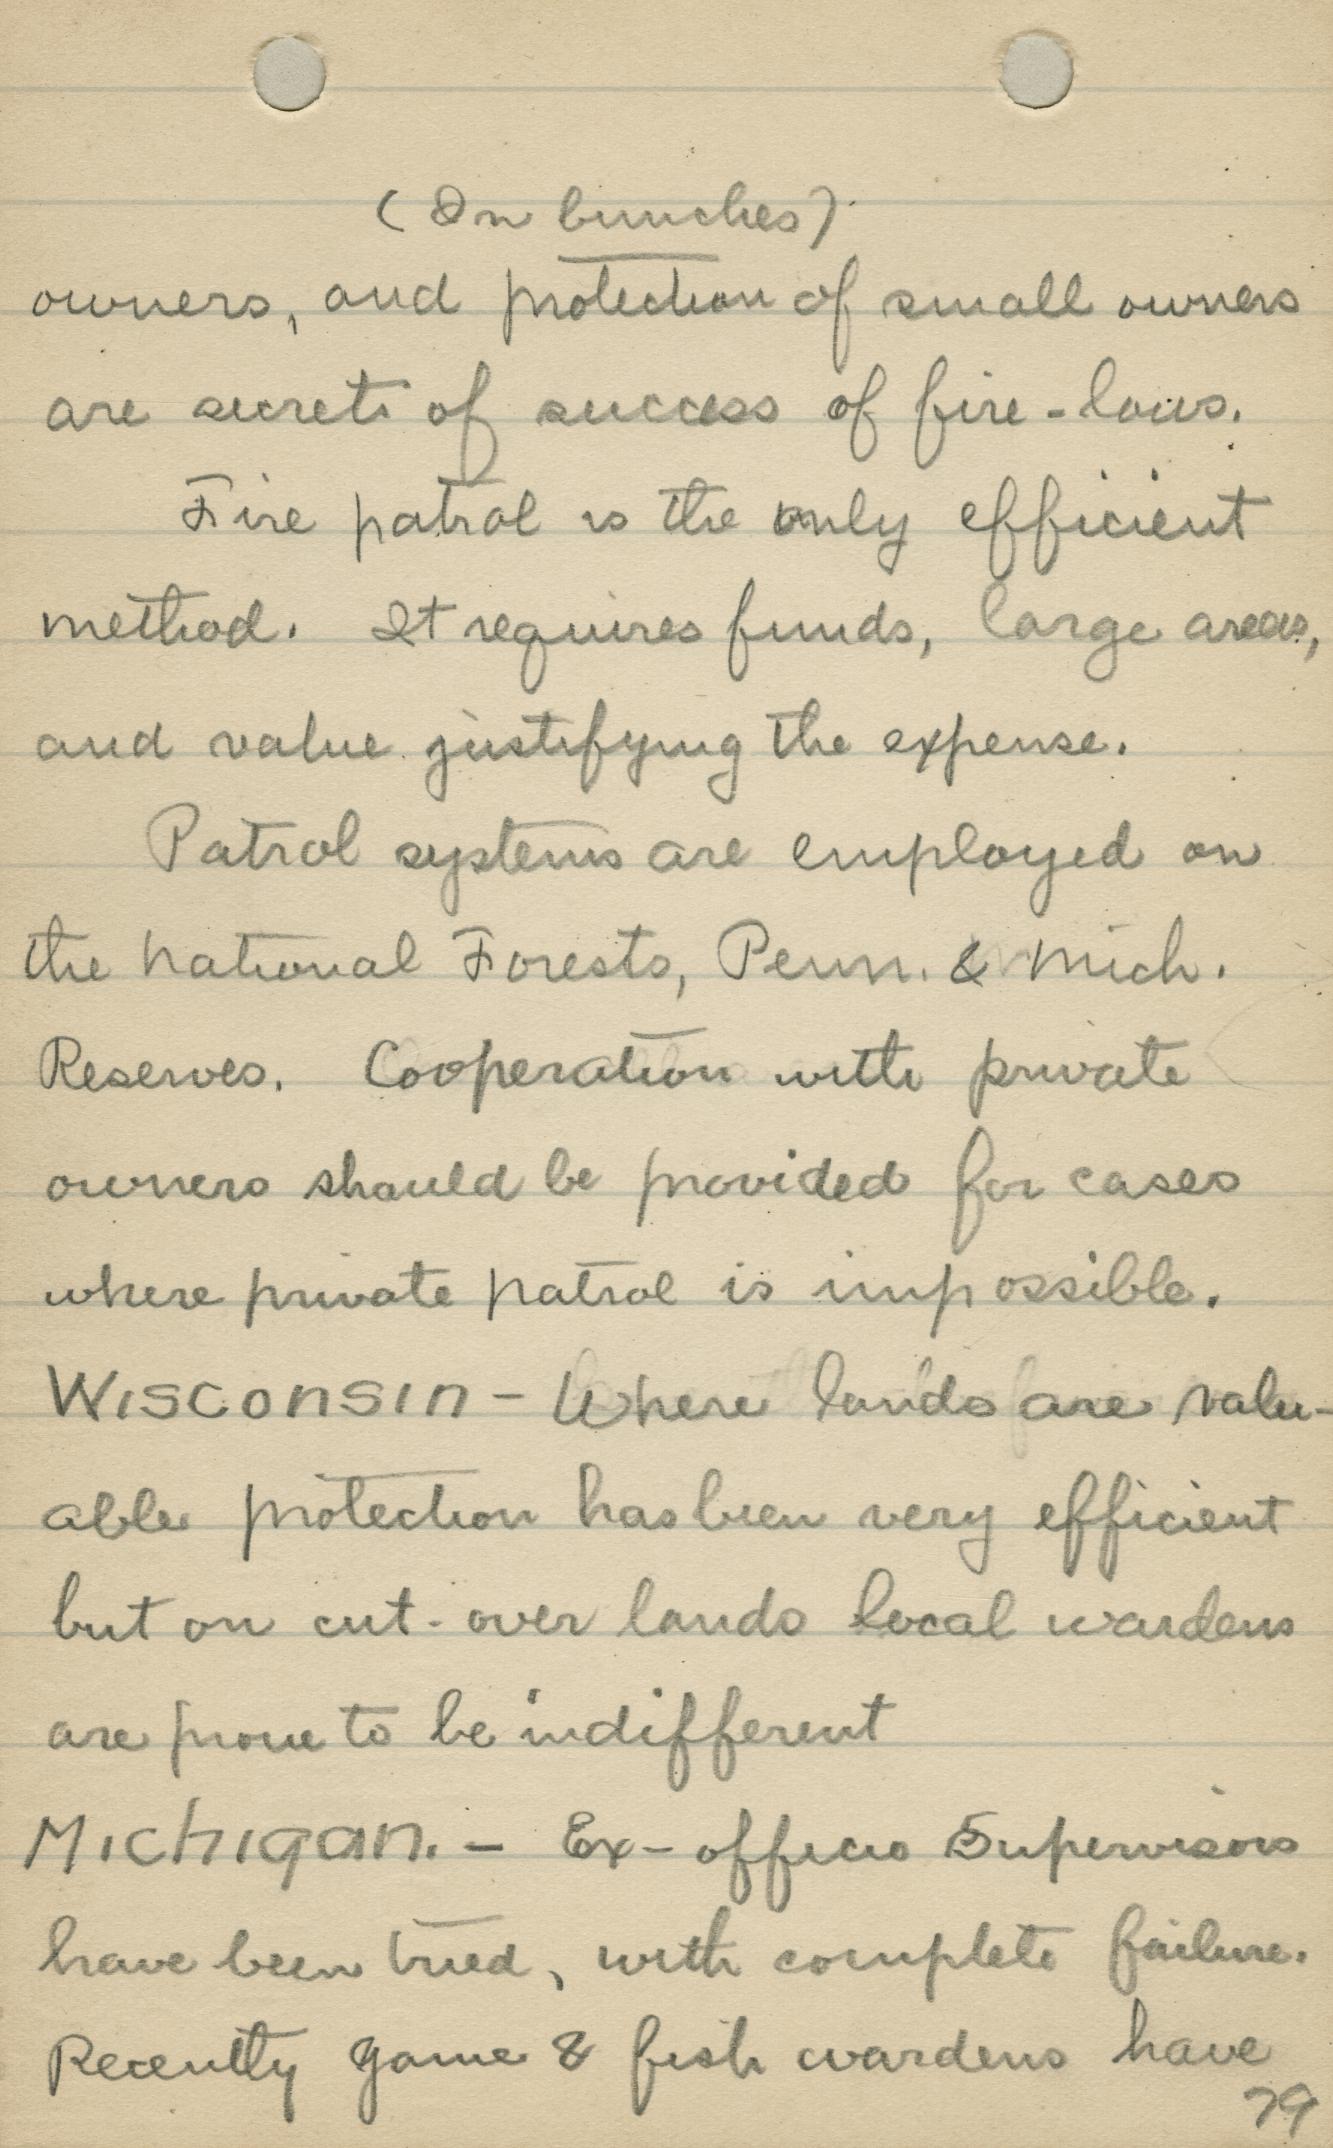 (In bunches)
owners, and protection of small owners
are secrets of success of fire-laws.
Fire patrol is the only efficient
method. It requires funds, large areas,
and value justifying the expense.
Patrol systems are employed on
the National Forests, Penn. & Mich.
Reserves. Cooperation with private
owners should be provided for cases
where private patrol is impossible.
Wisconsin - Where lands are valu-
able protection has been very efficient
but on cut-over lands local wardens
are prone to be indifferent
Michigan. - Ex-officio Supervisors
have been tried, with complete failure.
Recently game & fish wardens have
79